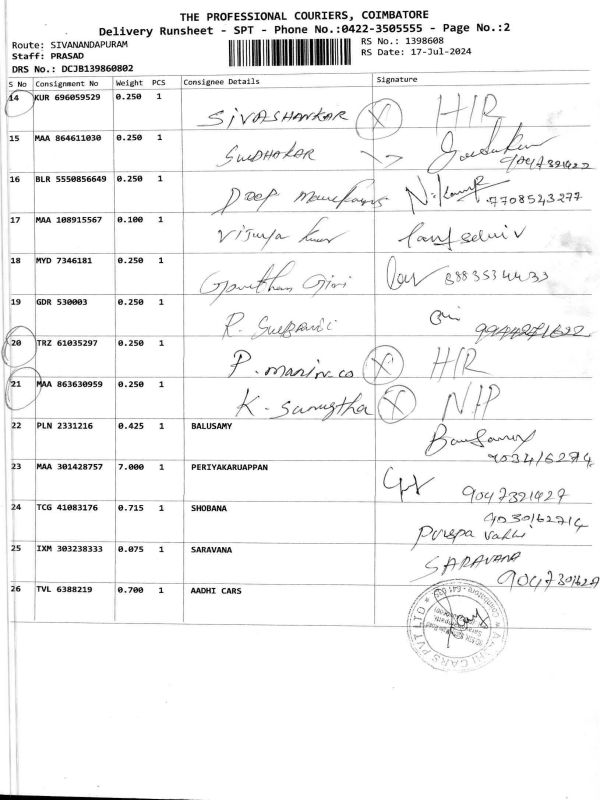 THE PROFESSIONAL COURIERS, COIMBATORE
Delivery Runsheet - SPT - Phone No.:0422-3505555 - Page No.:2
Route: SIVANANDAPURAM RS No.: 1398608
Staff: PRASAD RS Date: 17-Jul-2024
DRS No.: DCJB139860802
S No Consignment No Weight PCS Consignee Details Signature
14 KUR 696059529 0.250 1 SIVASHANKAR X HIR
15 MAA 864611030 0.250 1 SUDHAKAR
16 BLR 5550856649 0.250 1 Deep 7708543277
17 MAA 108915567 0.100 1 Vijaya Kumar
18 MYD 7346181 0.250 1 8883534433
19 GDR 530003 0.250 1 R.
20 TRZ 61035297 0.250 1 P. X HIR
21 MAA 863630959 0.250 1 K - X NIP
22 PLN 2331216 0.425 1 BALUSAMY
9034162714
23 MAA 301428757 7.000 1 PERIYAKARUAPPAN
9047391427
24 TCG 41083176 0.715 1 SHOBANA 9030162714
25 IXM 303238333 0.075 1 SARAVANA SARAVANA
26 TVL 6388219 0.700 1 AADHI CARS
AADHI CARS PVT LTD